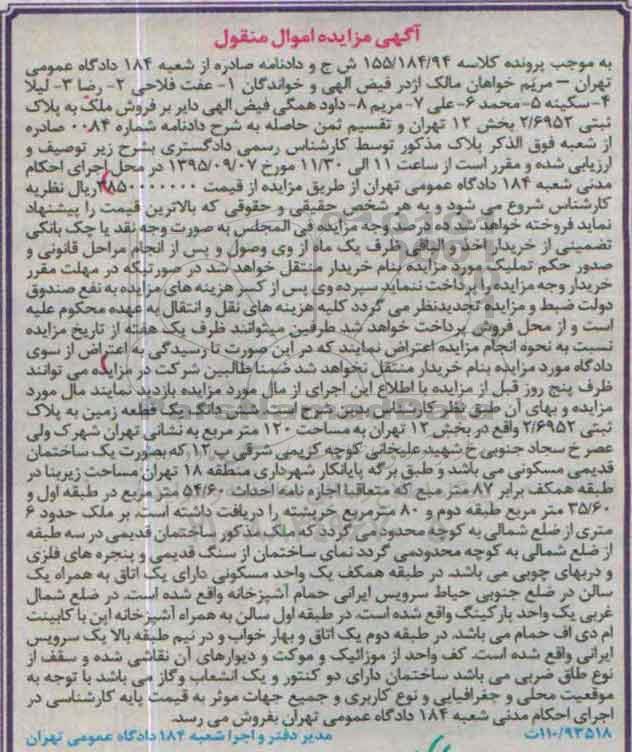 آگهی مزایده اموال منقول
به موجب پرونده کلاسه ۱۵۵/۱۸۴/۹۴ ش ج و دادنامه صادره از شعبه ۱۸۴ دادگاه عمومی
تهران – مریم خواهان مالک اژدر فیض الهی و خواندگان ۱- عفت فلاحی ۲- رضا ۳- لیلا
۴- سکینه ۵- محمد ۶- علی ۷- مریم ۸- داود همگی فیض الهی دایر بر فروش ملک به پلاک
ثبتی ۲/۶۹۵۲ بخش ۱۲ تهران و تقسیم ثمن حاصله به شرح دادنامه شماره ۰۰۸۴ صادره
از شعبه فوق الذکر پلاک مذکور توسط کارشناس رسمی دادگستری بشرح زیر توصیف و
ارزیابی شده و مقرر است از ساعت ۱۱ الی ۱۱/۳۰ مورخ ۱۳۹۵/۰۹/۰۷ در محل اجرای احکام
مدنی شعبه ۱۸۴ دادگاه عمومی تهران از طریق مزایده از قیمت ریال نظریه
کارشناس شروع می شود و به هر شخص حقیقی و حقوقی که بالاترین قیمت را پیشنهاد
نماید فروخته خواهد شد ده درصد وجه مزایده فی المجلس به صورت وجه نقد یا چک بانکی
تضمینی از خریدار اخذ و الباقی ظرف یک ماه از وی وصول و پس از انجام مراحل قانونی و
صدور حکم تملیک مورد مزایده بنام خریدار منتقل خواهد شد در صورتیکه در مهلت مقرر
خریدار وجه مزایده را پرداخت ننماید سپرده وی پس از کسر هزینه های مزایده به نفع صندوق
دولت ضبط و مزایده تجدیدنظر می گردد کلیه هزینه های نقل و انتقال به عهده محکوم علیه
است و از محل فروش پرداخت خواهد شد طرفین میتوانند ظرف یک هفته از تاریخ مزایده
نسبت به نحوه انجام مزایده اعتراض نمایند که در این صورت تا رسیدگی به اعتراض از سوی
دادگاه مورد مزایده بنام خریدار منتقل نخواهد شد ضمنا طالبین شرکت در مزایده می توانند
ظرف پنج روز قبل از مزایده با اطلاع این اجرای از مال مورد مزایده بازدید نمایند مال مورد
مزایده و بهای آن طبق نظر کارشناس بدین شرح است دانگ یک قطعه زمین به پلاک
ثبتی ۲/۶۹۵۲ واقع در بخش ۱۲ تهران به مساحت ۱۲۰ متر مربع به نشانی تهران شهرک ولی
عصر خ سجاد جنوبی خ شهید علیخانی کوچه کریمی شرقی پ ۱۲ که بصورت یک ساختمان
قدیمی مسکونی می باشد و طبق برگه پایانکار شهرداری منطقه ۱۸ تهران مساحت زیربنا در
طبقه همکف برابر ۸۷ متر مبع که متعاقبا اجازه نامه احداث ۵۴/۶۰ متر مربع در طبقه اول و
۳۵/۶۰ متر مربع طبقه دوم و ۸۰ مترمربع خرپشته را دریافت داشته است. بر ملک حدود ۶
متری از ضلع شمالی به کوچه محدود می گردد که ملک مذکور ساختمان قدیمی در سه طبقه
از ضلع شمالی به کوچه محدودمی گردد نمای ساختمان از سنگ قدیمی و پنجره های فلزی
و دربهای چوبی می باشد. در طبقه همکف یک واحد مسکونی دارای یک اتاق به همراه یک
سالن در ضلع جنوبی حیاط سرویس ایرانی حمام آشپزخانه واقع شده است. در ضلع شمال
غربی یک واحد پارکینگ واقع شده است. در طبقه اول سالن به همراه آشپزخانه اپن با کابینت
ام دی اف حمام می باشد. در طبقه دوم یک اتاق و بهار خواب و در نیم طبقه بالا یک سرویس
ایرانی واقع شده است. کف واحد از موزائیک و موکت و دیوارهای آن نقاشی شده و سقف از
نوع طاق ضربی می باشد ساختمان دارای دو کنتور و یک انشعاب وگاز می باشد با توجه به
موقعیت محلی و جغرافیایی و نوع کاربری و جمیع جهات موثر به قیمت پایه کارشناسی در
اجرای احکام مدنی شعبه ۱۸۴ دادگاه عمومی تهران بفروش می رسد.
۱۱۰/۹۳۵۱۸ت مدیر دفتر و اجرا شعبه ۱۸۴ دادگاه عمومی تهران